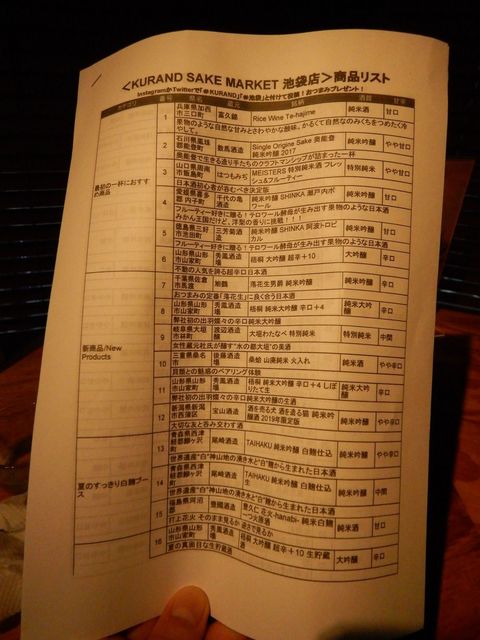 ＜KURAND SAKE MARKET 池袋店＞商品リスト
InstagramかTwitterで「@KURAND」「#池袋」と付けて投稿！おつまみプレゼント！
カテゴリ 番号 県名 蔵元 銘柄 酒質 甘辛
最初の一杯におすすめ商品
1 兵庫県加西市三口町 富久錦 Rice Wine Te-hajime 純米 甘口
果物のような自然な甘みとさわやかな酸味。かるくて自然なのみくちをつめたく冷やして。
2 石川県鳳珠郡能登町 数馬酒造 Single Origine Sake 奥能登 純米吟醸 2017 純米吟醸 やや甘口
奥能登で生きる造り手たちのクラフトマンシップが詰まった一杯
3 山口県周南市飯島町 はつもみぢ MEISTERS 特別純米 フレッシュ&フルーティー 特別純米 やや甘口
日本酒初心者が呑むべき決定版
4 愛媛県喜多郡 内子町 千代の亀酒造 純米吟醸 SHINKA 瀬戸内ボワール 純米吟醸 甘口
フルーティー好きに贈る！テロワール酵母が生み出す果物のような日本酒
みかん王国だけど、洋梨の香りに挑戦！！！
5 徳島県三好市池田町 三芳菊酒造 純米吟醸 SHINKA 阿波トロピカル 純米吟醸 甘口
フルーティー好きに贈る！テロワール酵母が生み出す果物のような日本酒
6 山形県山形市山家町 秀鳳酒造場 梧桐 大吟醸 超辛＋10 大吟醸 辛口
不動の人気を誇る超辛口日本酒
新商品/New Products
7 千葉県佐倉市馬渡 旭鶴 落花生男爵 純米吟醸 純米吟醸 辛口
おつまみの定番「落花生」に良く合う日本酒
8 山形県山形市山家町 秀鳳酒造場 梧桐 純米大吟醸 辛口＋4 純米大吟醸 辛口
弊社初の出羽燦々の辛口純米大吟醸
9 岐阜県大垣市林町 渡辺酒造醸 大垣わたなべ 特別純米 特別純米 中間
女性蔵元杜氏が醸す"水の都大垣"の美酒
10 三重県桑名市 後藤酒造場 桑蛤 山廃純米 火入れ 純米酒 やや辛口
貝類との魅惑のペアリング体験
11 山形県山形市山家町 秀鳳酒造場 梧桐 純米大吟醸 辛口＋4 しぼりたて生 純米大吟醸 辛口
弊社初の出羽燦々の辛口 純米大吟醸の生酒
12 新潟県新潟市西蒲区 宝山酒造 酒を売る犬 酒を造る猫 純米吟醸酒 2019年限定版 純米吟醸 やや辛口
大切な友と呑み交わす酒
夏のすっきり白麹ブース
13 青森県西津軽郡鰺ヶ沢町 尾崎酒造 TAIHAKU 純米吟醸 白麹仕込 純米吟醸 やや辛口
世界遺産"白"神山地の湧き水と"白"麹から生まれた日本酒
14 青森県西津軽郡鰺ヶ沢町 尾崎酒造 TAIHAKU 純米吟醸 白麹仕込 生 純米吟醸 中間
世界遺産"白"神山地の湧き水と"白"麹から生まれた日本酒
15 福島県河沼郡 豊國酒造 豊久仁 花火-hanabi- 純米白麹 一つ火放酒 純米酒 甘口
打上花火 そのまま見るか 逆さで見るか
16 山形県山形市山家町 秀鳳酒造場 梧桐 大吟醸 超辛＋10 生貯蔵酒 大吟醸 辛口
夏の真面目な生貯蔵酒